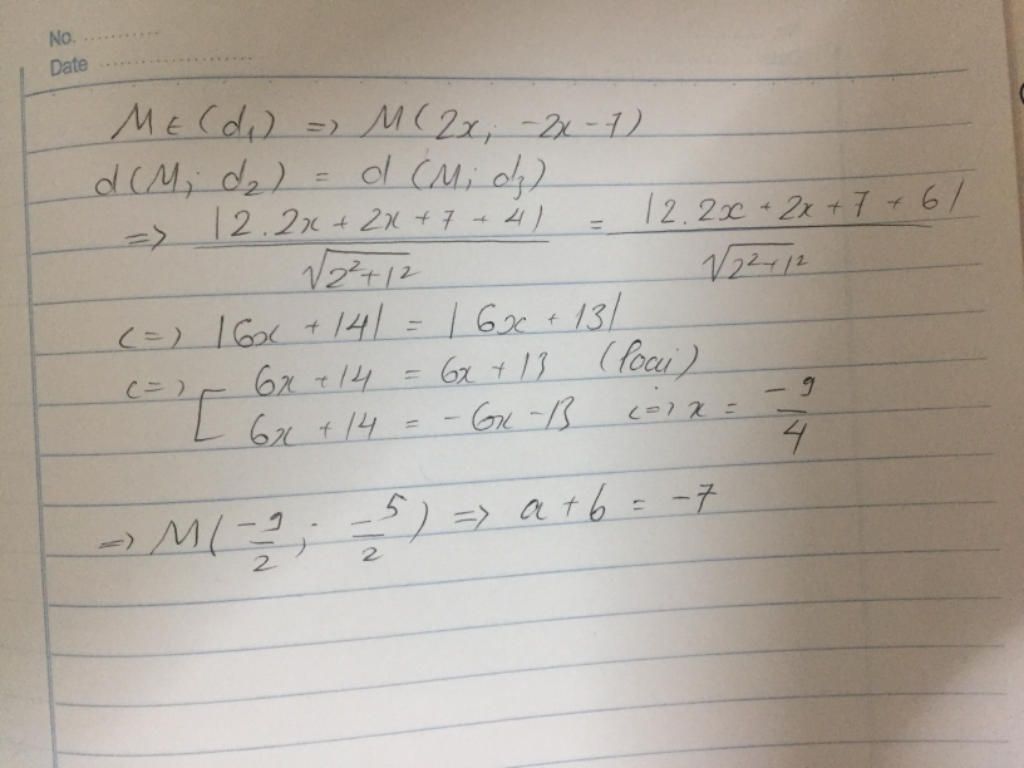 No. ............
Date ........................
M ∈ (d₁) => M(2x; -2x-7)
d(M; d₂) = d(M; d₃)
=> |2.2x + 2x + 7 + 4| / √(2²+1²) = |2.2x + 2x + 7 + 6| / √(2²+1²)
<=> |6x + 14| = |6x + 13|
<=> [ 6x + 14 = 6x + 13 (loại)
6x + 14 = -6x - 13 <=> x = -9/4
=> M(-9/2; -5/2) => a + b = -7